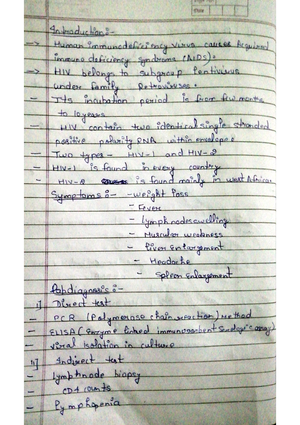 Introduction :-
→ Human immunodeficiency virus causes Acquired
immuno deficiency syndrome (AIDS).
→ HIV belongs to subgroup lentivirus
under family Retroviruses.
- It's incubation period is from few months
to 10 years
- HIV contain two identical single stranded
positive polarity RNA within envelope
- Two types - HIV-1 and HIV-2
- HIV-1 is found in every country
- HIV-2 is found mainly in west African
Symptoms :- - weight loss
- Fever
- Lymphnode swelling
- Muscular weakness
- Liver Enlargement
- Headache
- Spleen Enlargement
Labdiagnosis :-
i) Direct test
- PCR (Polymerase chain reaction) Method
- ELISA (Enzyme linked immunosorbent assay)
- Viral Isolation in culture
ii) Indirect test
- Lymphnode biopsy
- CD4 counts
- Lymphopenia